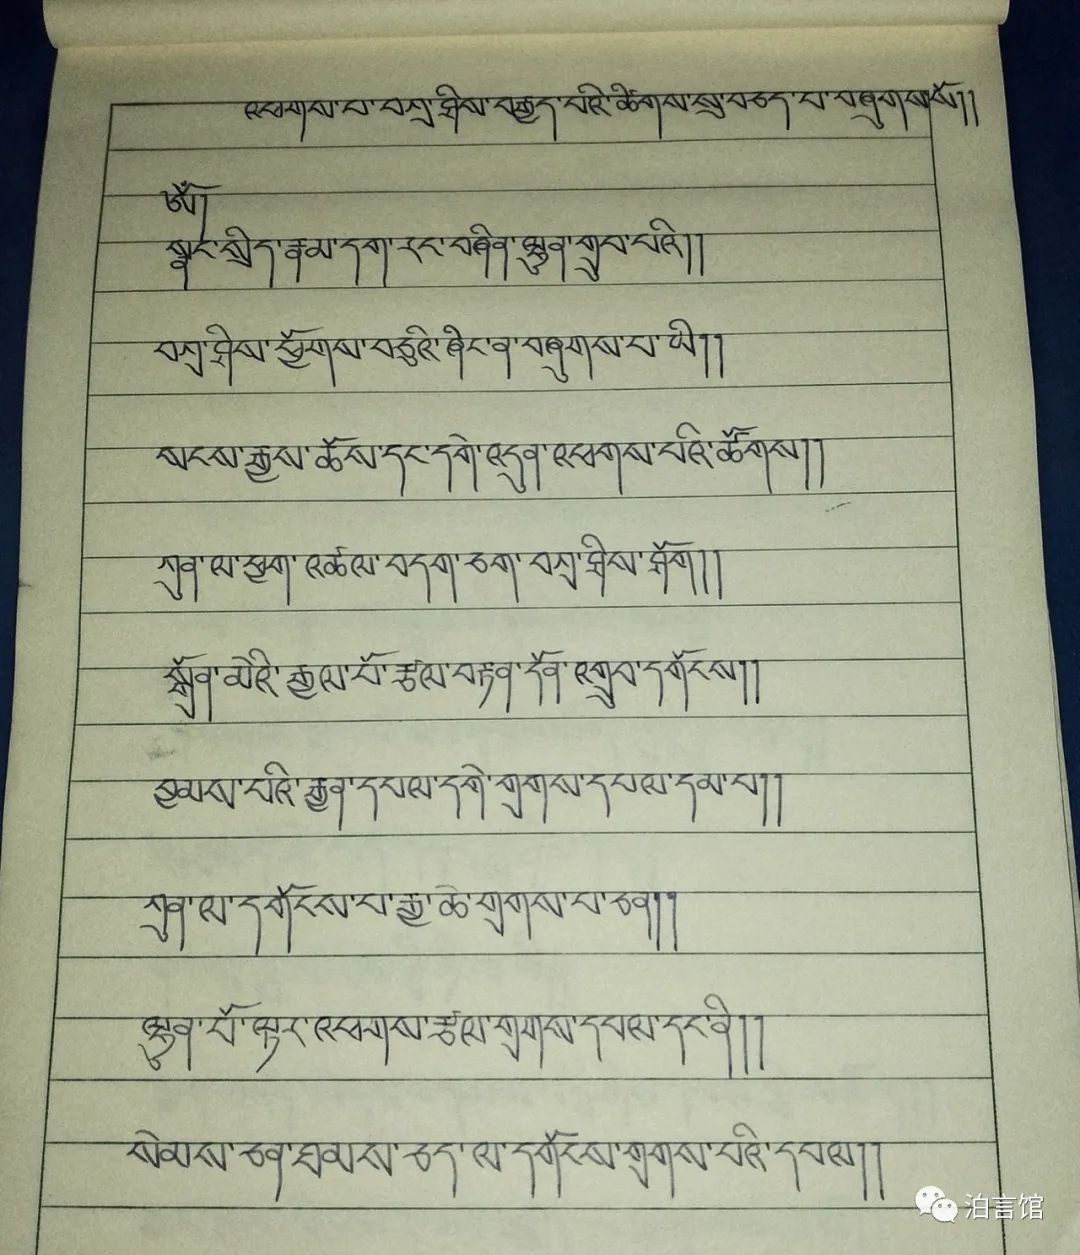 འཕགས་པ་བཀྲ་ཤིས་བརྒྱད་པའི་ཚིགས་སུ་བཅད་པ་བཞུགས་སོ།།
ཨོཾ།
སྣང་སྲིད་རྣམ་དག་རང་བཞིན་ལྷུན་གྲུབ་པའི།།
བཀྲ་ཤིས་ཕྱོགས་བཅུའི་ཞིང་ན་བཞུགས་པ་ཡི།།
སངས་རྒྱས་ཆོས་དང་དགེ་འདུན་འཕགས་པའི་ཚོགས།།
ཀུན་ལ་ཕྱག་འཚལ་བདག་ཅག་བཀྲ་ཤིས་ཤོག།།
སྒྲོན་མེའི་རྒྱལ་པོ་རྩལ་བརྟན་དོན་འགྲུབ་དགོངས།།
བྱམས་པའི་རྒྱན་དཔལ་དགེ་གྲགས་དཔལ་དམ་པ།།
ཀུན་ལ་དགོངས་པ་རྒྱ་ཆེ་གྲགས་པ་ཅན།།
ལྷུན་པོ་ལྟར་འཕགས་རྩལ་གྲགས་དཔལ་དང་ནི།།
སེམས་ཅན་ཐམས་ཅད་ལ་དགོངས་གྲགས་པའི་དཔལ།།
泊言馆